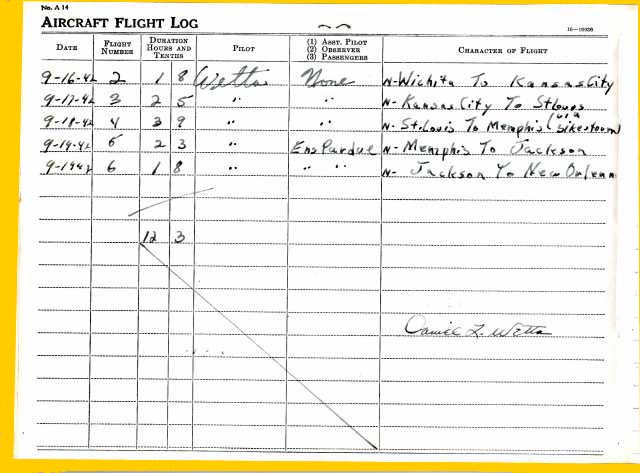 No. A 14
AIRCRAFT FLIGHT LOG
DATE FLIGHT NUMBER DURATION HOURS AND TENTHS PILOT (1) ASST. PILOT (2) OBSERVER (3) PASSENGERS CHARACTER OF FLIGHT
9-16-42 2 1 8 Wetta None N-Wichita To Kansas City
9-17-42 3 2 5 " " N-Kansas City To St Louis
9-18-42 4 3 9 " " N-St Louis To Memphis (via Sikestown)
9-19-42 5 2 3 " Ens Pardue N-Memphis To Jackson
9-1942 6 1 8 " " " N-Jackson To New Orleans
12 3
Daniel L. Wetta